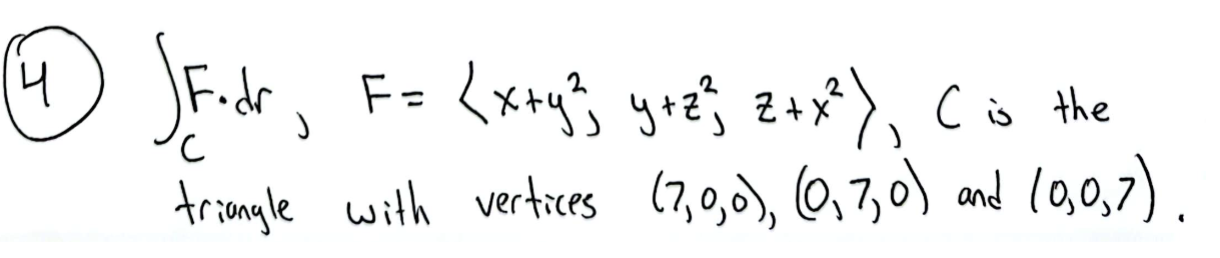 ④ ∫_C F·dr, F = ⟨x+y², y+z², z+x²⟩, C is the
triangle with vertices (7,0,0), (0,7,0) and (0,0,7).